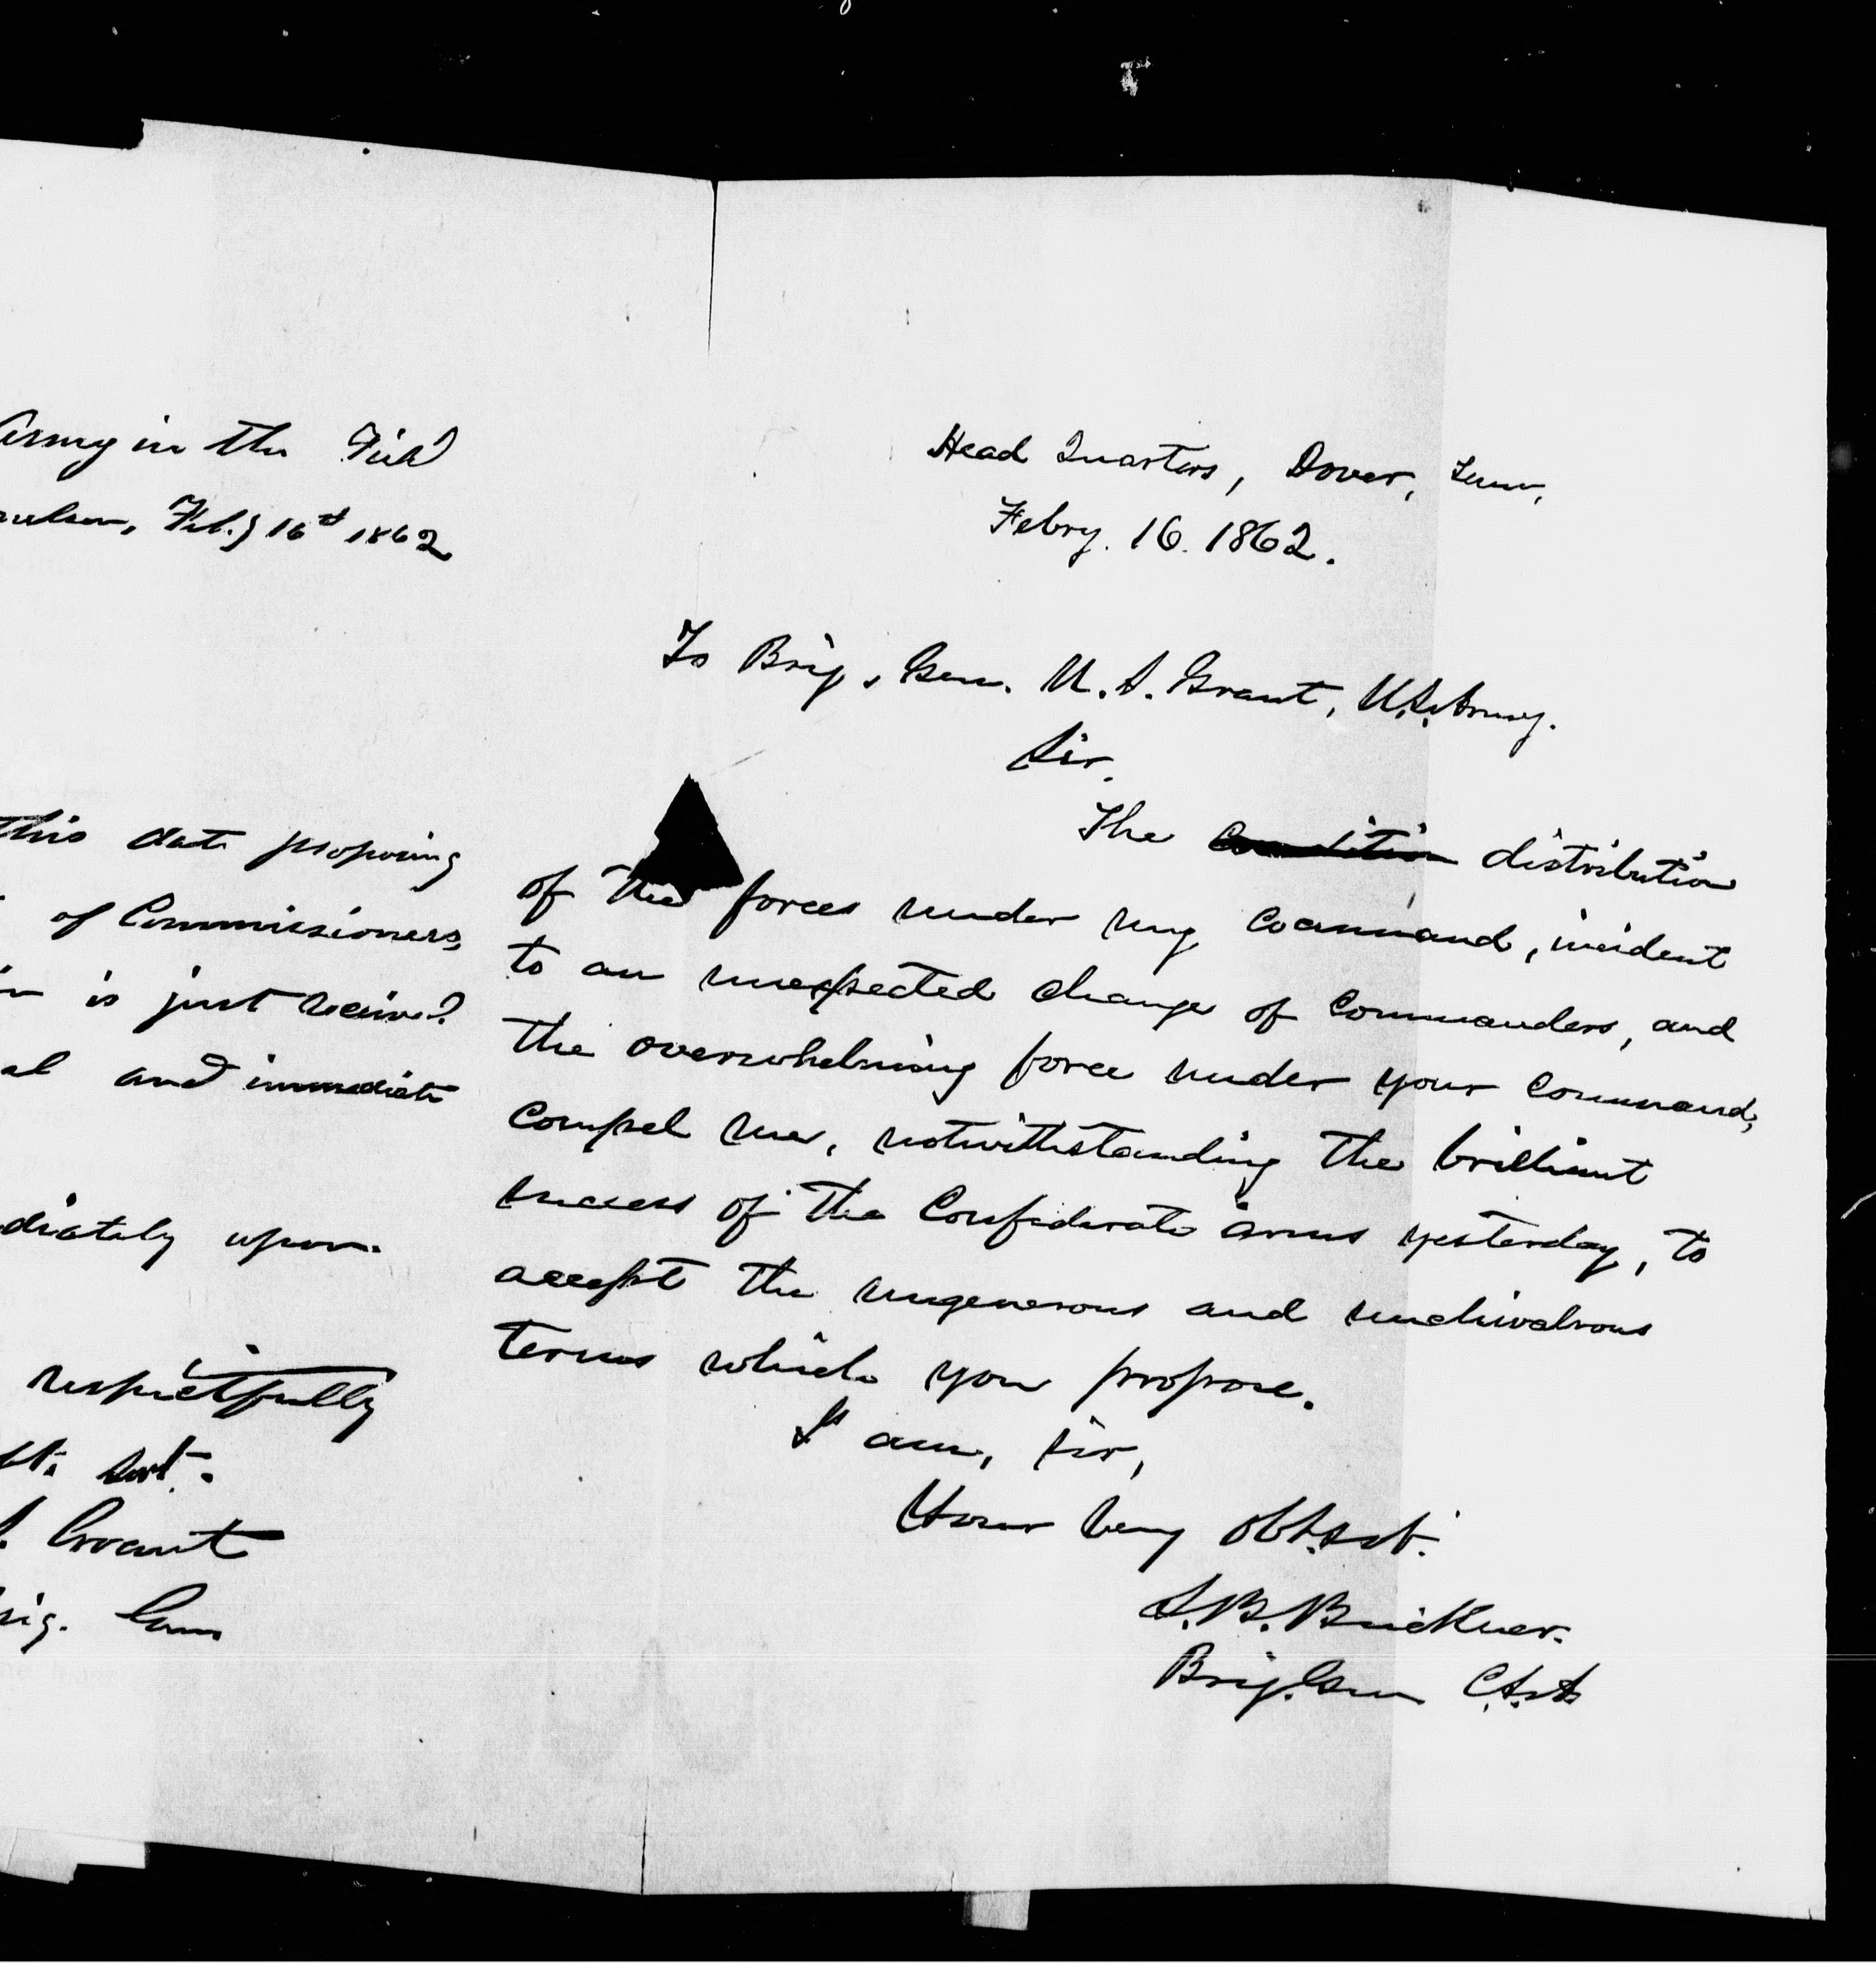 Army in the Field
Feby 16th 1862
this date proposing
of Commissioners,
is just received.
and immediate
diately upon
respectfully
obt. svt.
Grant
Brig. Gen
Head Quarters, Dover, Tenn,
Febry. 16. 1862.
To Brig. Gen. U. S. Grant, U.S. Army.
Sir.
The condition distribution
of the forces under my command, incident
to an unexpected change of commanders, and
the overwhelming force under your command,
compel me, notwithstanding the brilliant
success of the Confederate arms yesterday, to
accept the ungenerous and unchivalrous
terms which you propose.
I am, sir,
Your very obt. svt.
S. B. Buckner.
Brig. Gen C.S.A